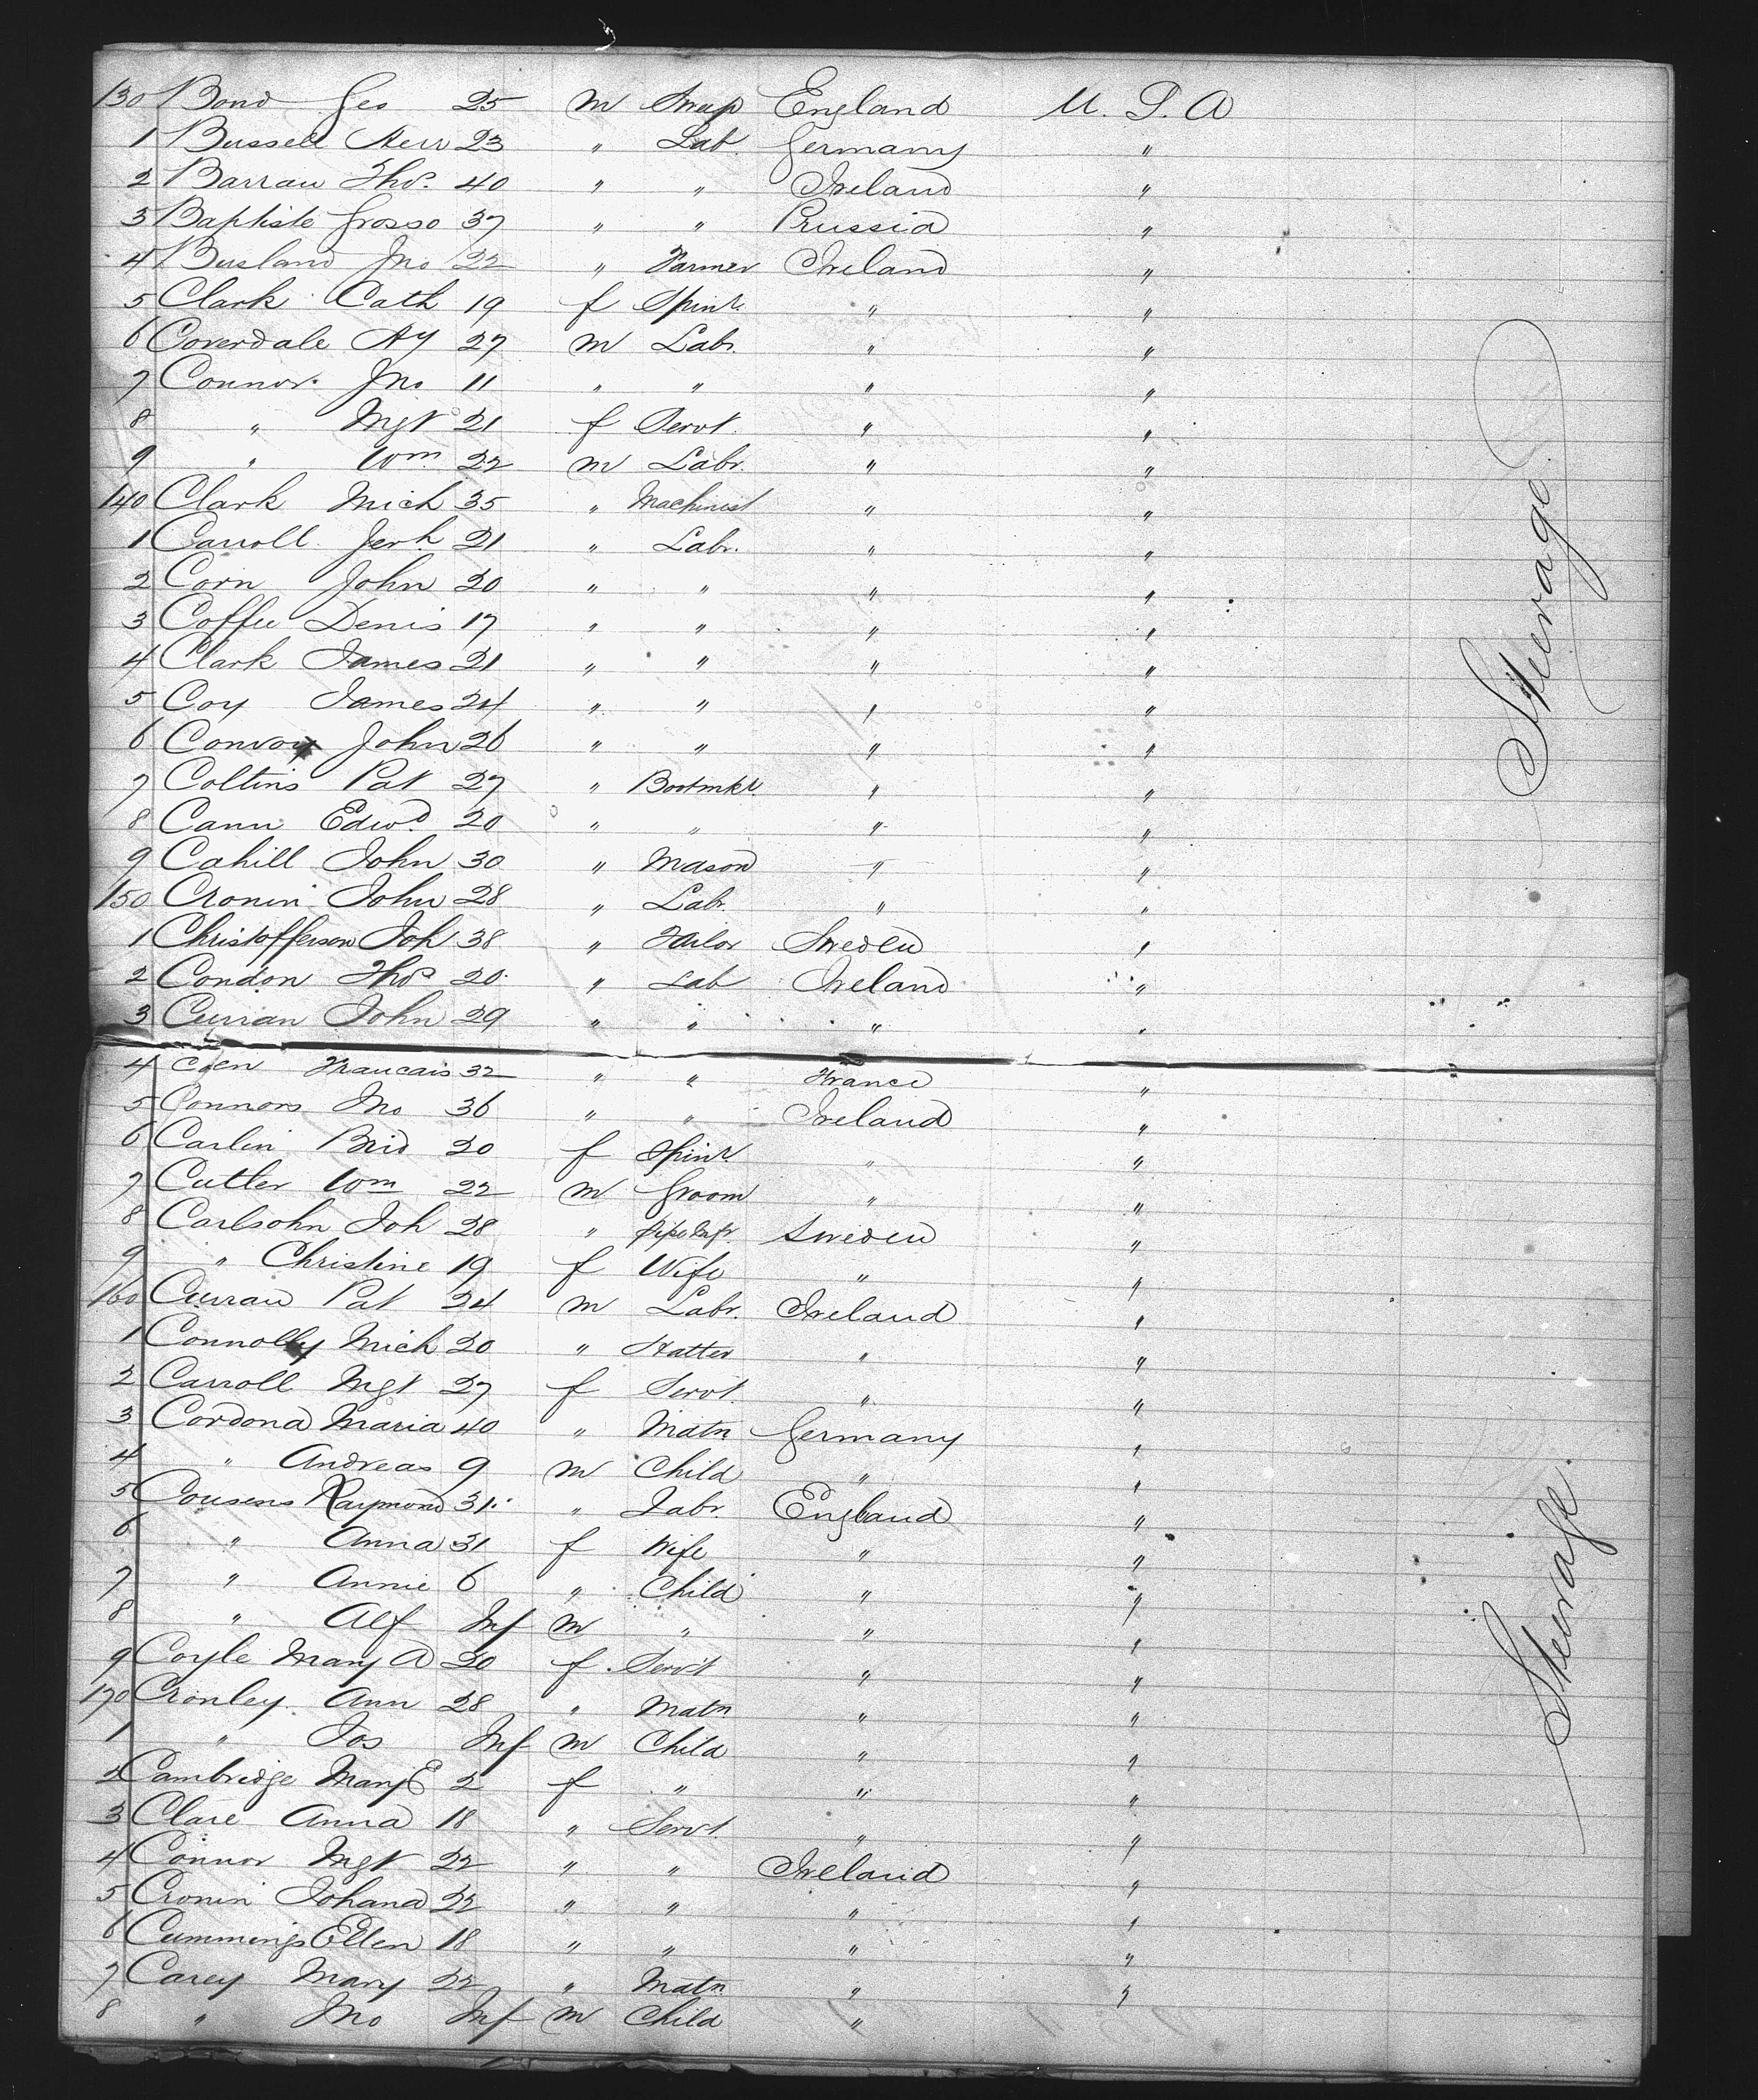 130 Bond Geo 25 m Sweep England U. S. A
1 Bussell Hew 23 " Lab. Germany "
2 Barran Thos. 40 " " Ireland "
3 Baptiste Grosso 37 " " Prussia "
4 Busland Jno 22 " Farmer Ireland "
5 Clark Cath 19 f Spinr. " "
6 Coverdale Hy 27 m Labr. " "
7 Connor Jno 11 " " " "
8 " Mgt 21 f Servt. " "
9 " Wm 22 m Labr. " "
140 Clark Mich 35 " Machinist " "
1 Carroll Jerh 21 " Labr. " "
2 Corn John 20 " " " "
3 Coffee Denis 17 " " " "
4 Clark James 21 " " " "
5 Coy James 24 " " " "
6 Convoy John 26 " " " "
7 Coltins Pat 27 " Bootmkr. " "
8 Cann Edwd 20 " " " "
9 Cahill John 30 " Mason " "
150 Cronin John 28 " Labr. " "
1 Christofferson Joh 38 " Tailor Sweden "
2 Condon Thos 20 " Lab Ireland "
3 Curran John 29 " " " "
4 Coen Francais 32 " " France "
5 Connors Jno 36 " " Ireland "
6 Carlin Brid 20 f Spinr. " "
7 Cutler Wm 22 m Groom " "
8 Carlsohn Joh 28 " Sweden "
9 " Christine 19 f Wife " "
160 Curran Pat 24 m Labr. Ireland "
1 Connolly Mich 20 " Hatter " "
2 Carroll Mgt 27 f Servt. " "
3 Cordona Maria 40 " Matn Germany "
4 " Andreas 9 m Child " "
5 Cousens Raymond 31 " Labr. England "
6 " Anna 31 f Wife " "
7 " Annie 6 " Child " "
8 " Alf Inf m " " "
9 Coyle Mary A 20 f Servt " "
170 Cronley Ann 28 " Matn " "
1 " Jos Inf m Child " "
2 Cambridge Mary E 2 f " " "
3 Clare Anna 18 " Servt. " "
4 Connor Mgt 22 " " Ireland "
5 Cronin Johana 22 " " " "
6 Cummings Ellen 18 " " " "
7 Carey Mary 22 " Matn " "
8 " Jno Inf m Child "
Steerage.
Steerage.